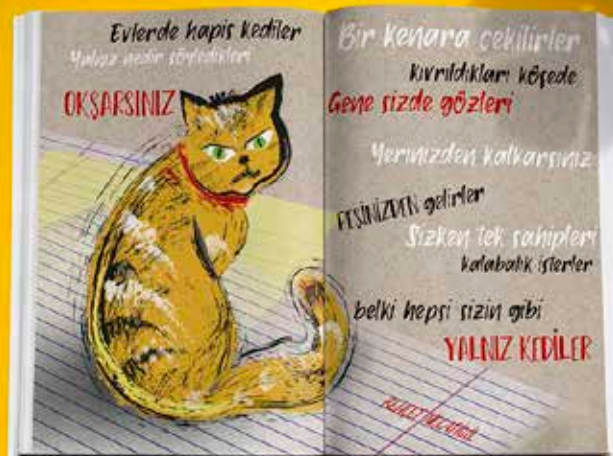 Evlerde hapis kediler
Yalnız nedir söyledikleri
OKŞARSINIZ
Bir kenara çekilirler
kıvrıldıkları köşede
Gene sizde gözleri
Yerinizden kalkarsınız
PEŞİNİZDEN gelirler
Sizken tek sahipleri
kalabalık isterler
belki hepsi sizin gibi
YALNIZ KEDİLER